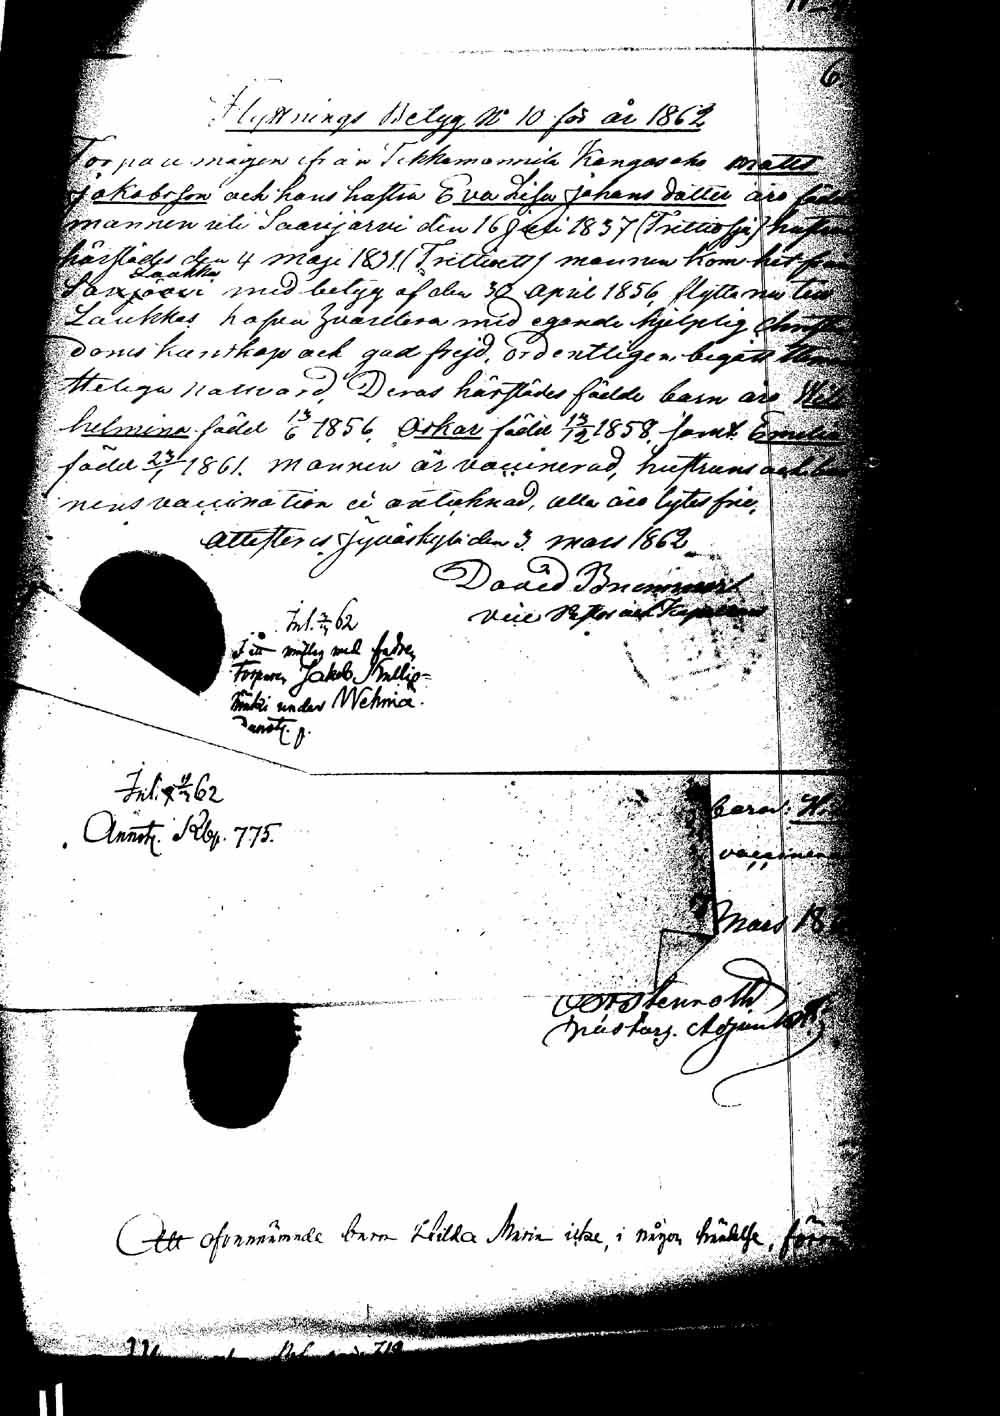 6
Flyttnings Betyg № 10 för år 1862
Torpare mågen ifrån Tikkamannila Kangasaho Matts
Jakobsson och hans hustru Eva Lisa Johans dotter äro födde
mannen uti Saarijärvi den 16 Juli 1837 (Trettiosju) hustrun
härstädes den 4 Maji 1831 (Trettiett) mannen kom hit från
Laukka
med betyg af den 30 April 1856, flytta nu till
Laukkas hafva hvardera med egande hjelplig Christen
doms kunskap och god frejd, ordentligen begått Herrans
Heliga Nattvard, Deras härstädes födde barn äro Wil
helmina född 13/6 1856, Oskar född 13/12 1858, samt Emelia
född 23/1 1861. mannen är vaccinerad, hustruns och bar
nens vaccination ej antecknad, alla äro lytes frie,
Attesteras Jyväskylä den 3 Mars 1862
David Brummer
vice Pastor och Kapellan
Inl. 62
med fadren
Torparen Jakob
under Wehniä
Inl. 62
Annot. Kbp. 775.
barn
vaccinera
Mars 18
Adjunkt
Att ofvannämnde barn Hilda Maria icke, i någon händelse, förr